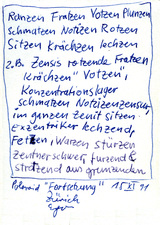 Ranzen Fratzen Votzen Plunzen
Schmatzen Notizen Rotzen
Sitzen Krächzen lechzen
z.B. Zensis rotzende Fratzen
Krächzen" Votzen",
Konzentrationslager
schmatzen Notizenzensur,
im ganzen Zenit sitzen
Exzentriker lechzend,
Fetzen, Warzen stürzen
zentnerschwer, furzend &
strotzend aus grunzenden
"Fortsetzung" 18 XI 91
Zürich